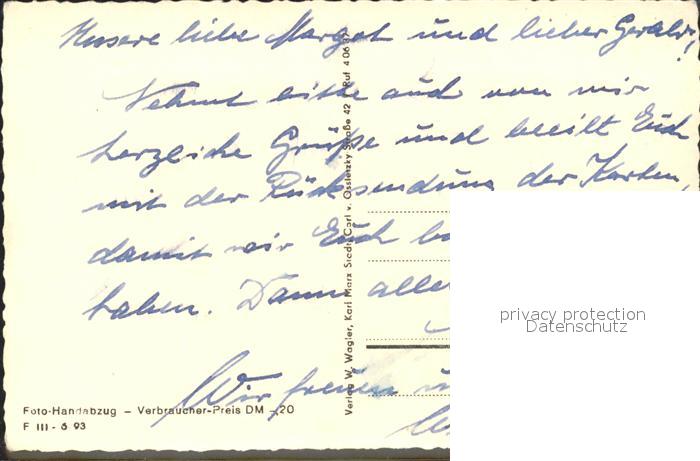 Unsere liebe Margot und lieber Gerald!
Nehmt bitte auch von mir
herzliche Grüße und beeilt Euch
mit der Rücksendung der Karten,
damit wir Euch
haben. Dann alle
Wir freuen
Foto-Handabzug – Verbraucher-Preis DM -,20
F III - 6 93
Verlag W. Wagler, Karl Marx Stadt, Carl v. Ossietzky Straße 42 Ruf 4 06
privacy protection
Datenschutz